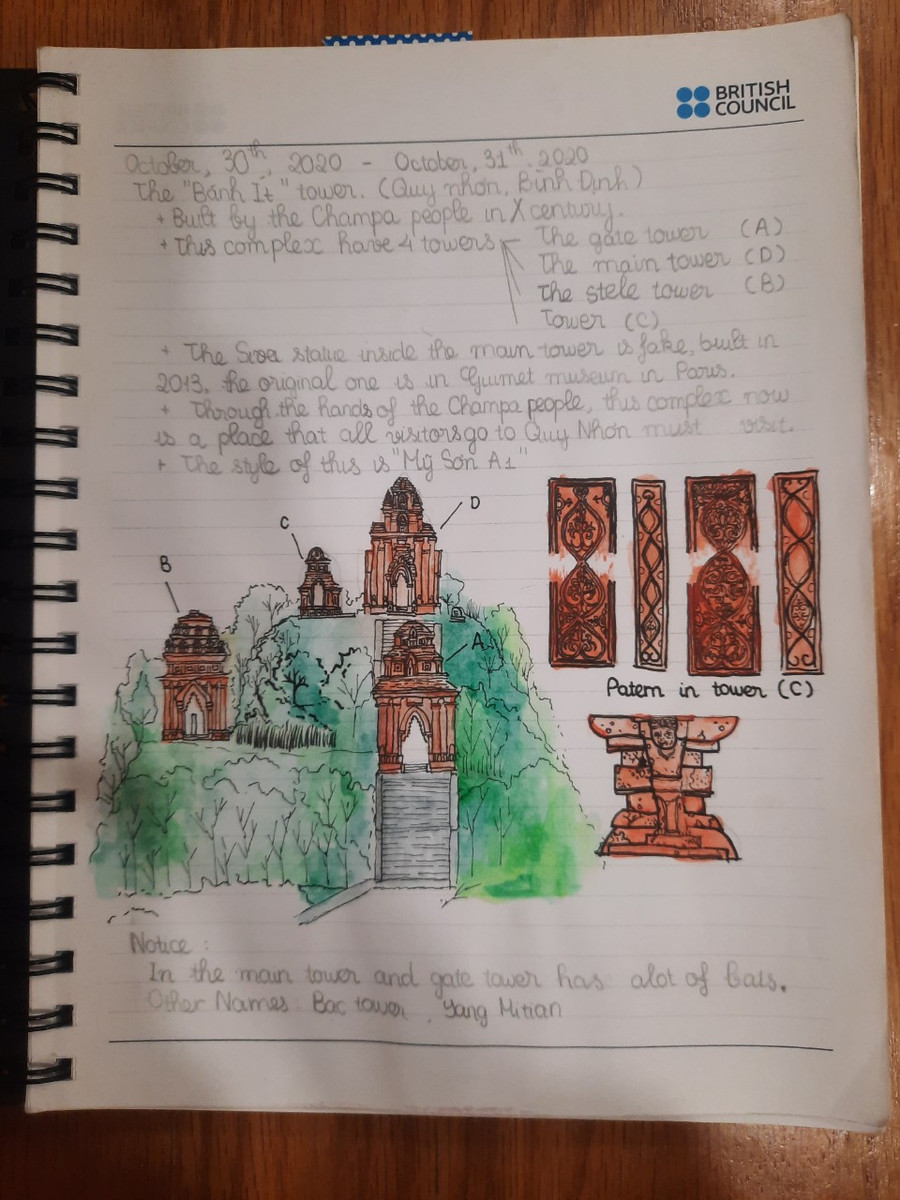 BRITISH
COUNCIL
October, 30th, 2020 - October, 31th. 2020
The "Bánh Ít" tower. (Quy nhơn, Bình Định)
+ Built by the Champa people in X century.
+ This complex have 4 towers
The gate tower (A)
The main tower (D)
The stele tower (B)
Tower (C)
+ The Siva statue inside the main tower is fake, built in
2013, the original one is in Guimet museum in Paris.
+ Through the hands of the Champa people, this complex now
is a place that all visitors go to Quy Nhơn must visit.
+ The style of this is "Mỹ Sơn A1"
D
C
B
A
Patern in tower (C)
Notice :
In the main tower and gate tower has alot of bats.
Other Names: Bạc tower, Yang Mtian